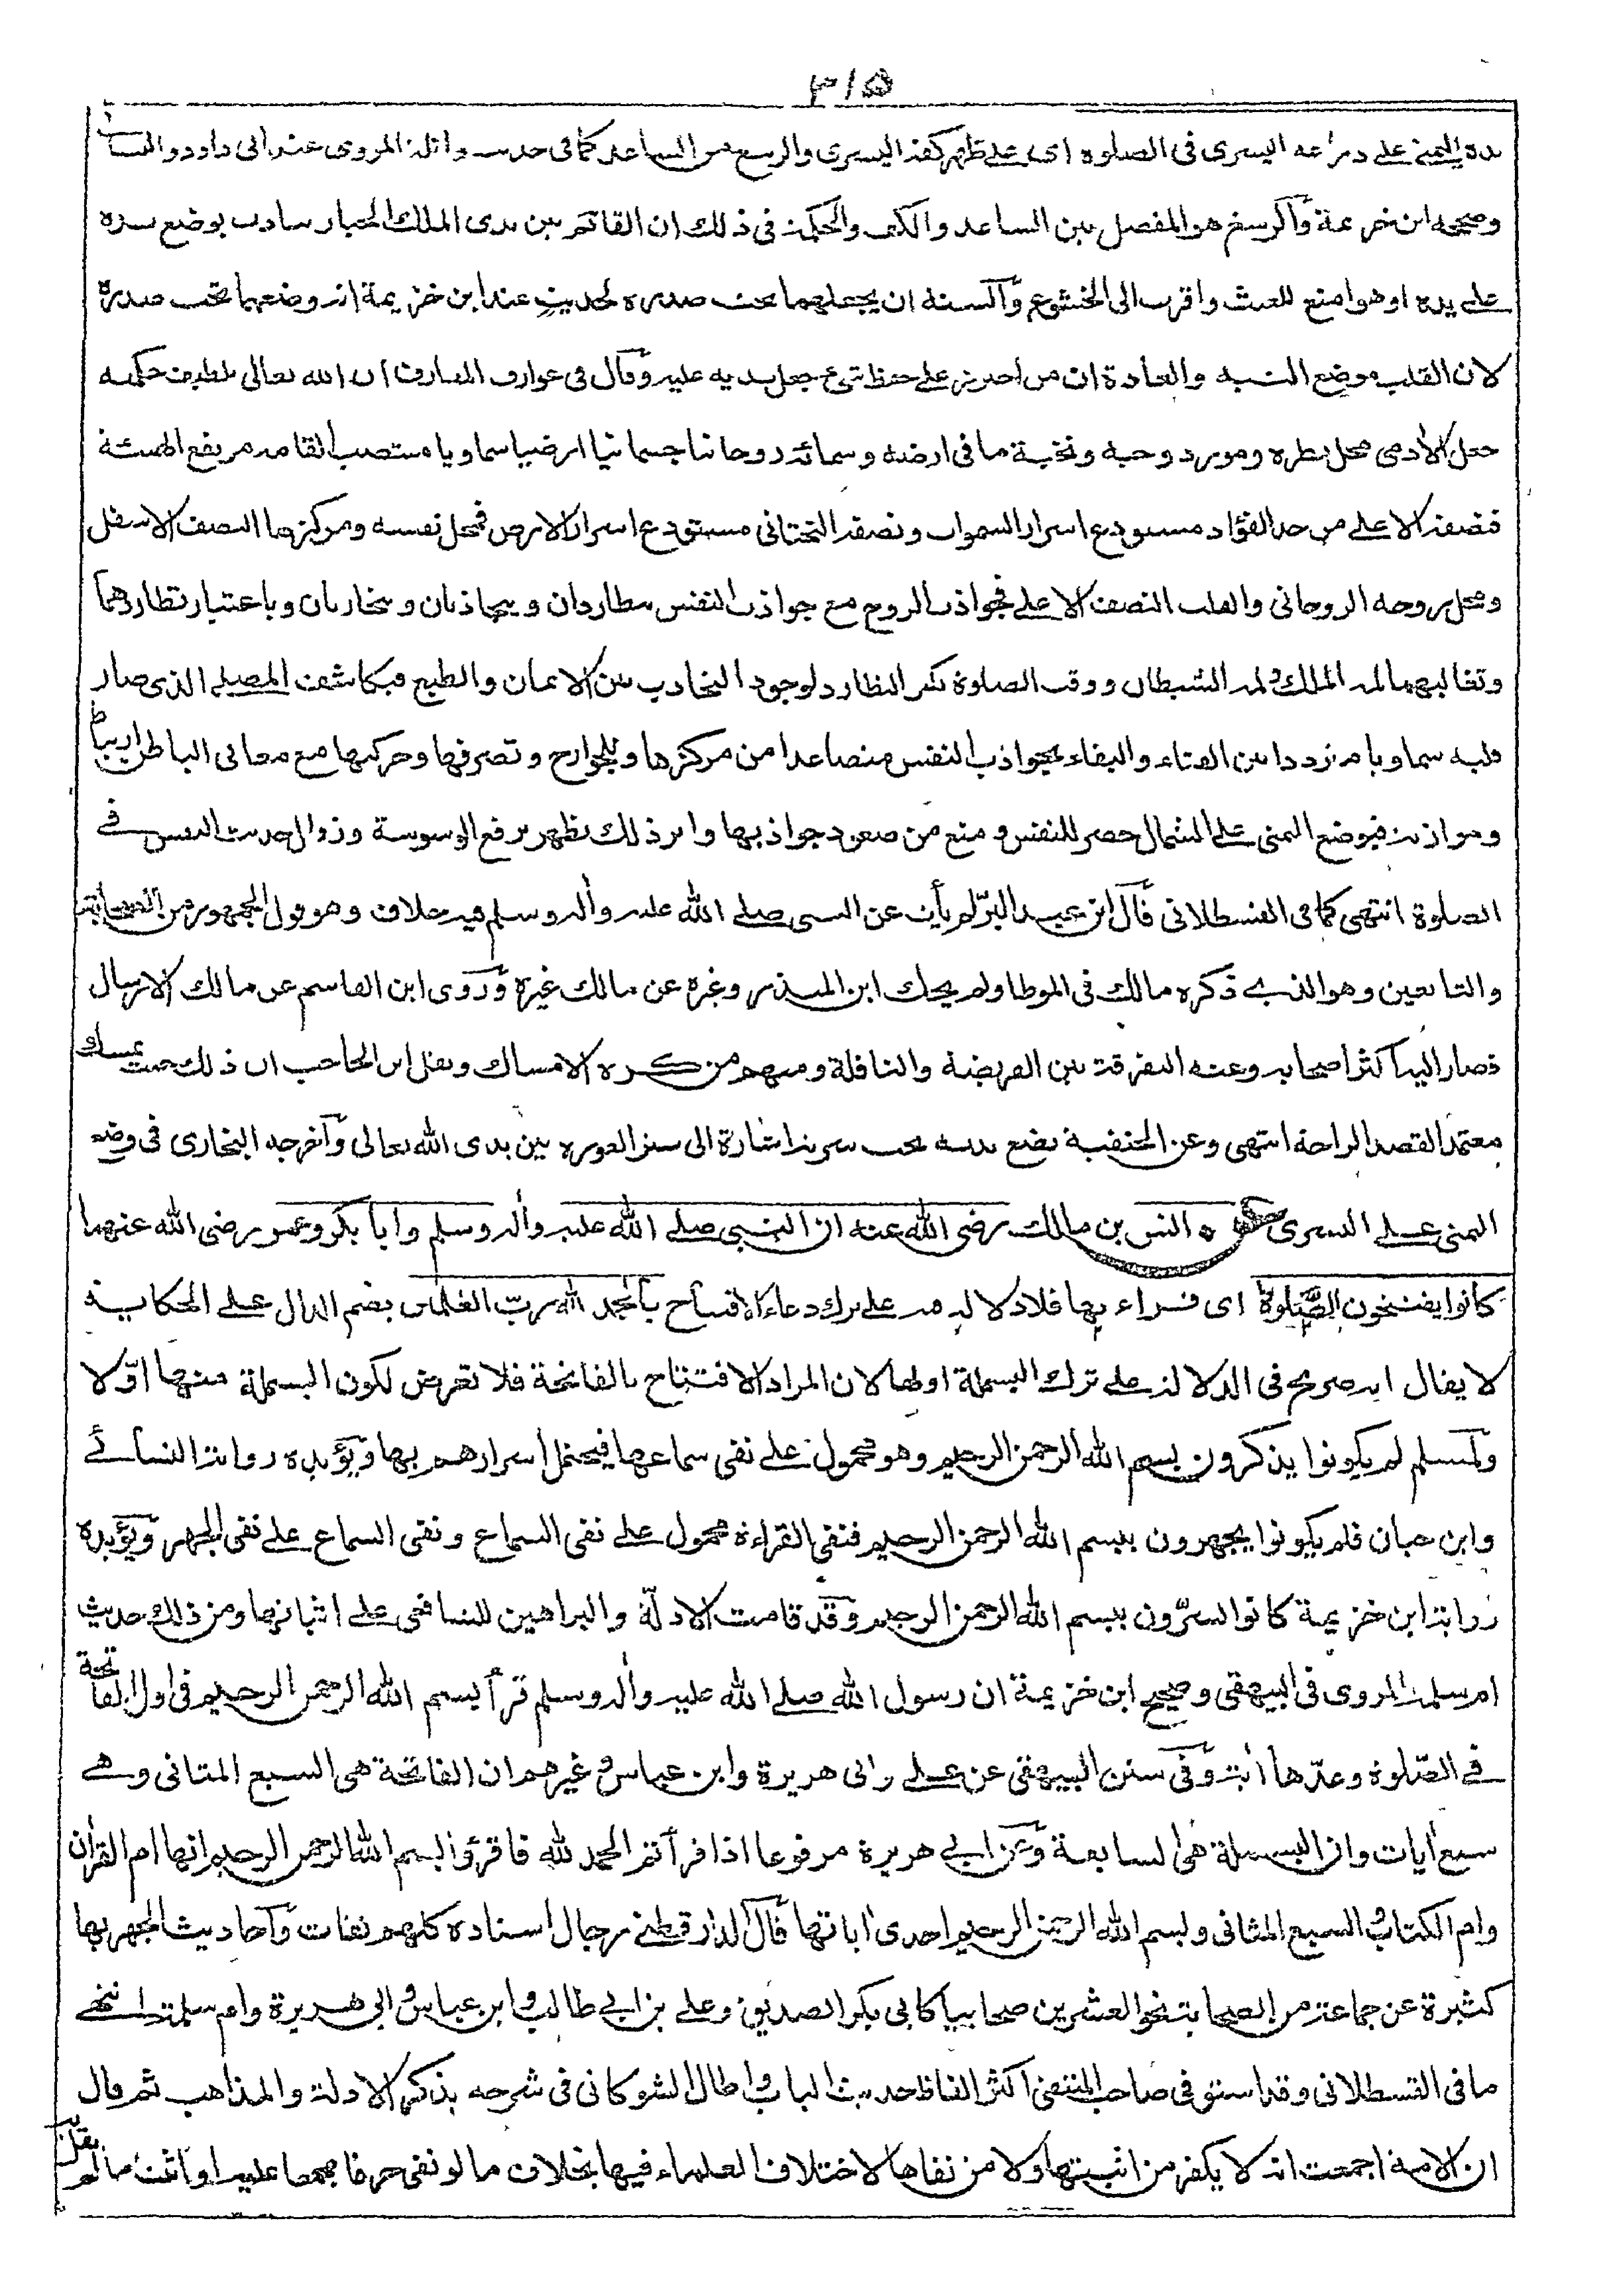 ٣١٥
يده اليمنى على ذراعه اليسرى فى الصلوة اى على ظهر كفه اليسرى والرسغ من الساعد كما فى حديث وائله المروى عند ابى داود والنسائى
وصححه ابن خزيمة والرسغ هو المفصل بين الساعد والكف والحكمة فى ذلك ان القائم بين يدى الملك الجبار يتادب بوضع يده
على يده او هو امنع للعبث واقرب الى الخشوع والسنة ان يجعلهما تحت صدره لحديث عند ابن خزيمة انه وضعهما تحت صدره
لان القلب موضع النية والعادة ان من احترز على حفظ شئ جعل يديه عليه وقال فى عوارف المعارف ان الله تعالى بلطيف حكمته
جعل الادمى محل نظره ومورد وحيه ونخبة ما فى ارضه وسمائه روحانيا جسمانيا ارضيا سماويا منتصب القامه مرتفع الهيئة
فنصفه الاعلى من حد الفؤاد مستودع اسرار السموات ونصفه التحتانى مستودع اسرار الارض فمحل نفسه ومركزها النصف الاسفل
ومحل روحه الروحانى والقلب النصف الاعلى فجواذب الروح مع جواذب النفس يتطاردان ويتجاذبان ويتحاربان وباعتبار تطاردهما
وتغالبهما لمه الملك ولمه الشيطان ووقت الصلوة يكثر التطارد لوجود التجاذب بين الايمان والطبع فيكاشف المصلى الذى صار
قلبه سماويا مترددا بين الفناء والبقاء بجواذب النفس متصاعدا من مركزها وللجوارح وتصرفها وحركتها مع معانى الباطن ارتباط
وموازنه فبوضع اليمنى على الشمال حصر للنفس ومنع من صعود جواذبها واثر ذلك يظهر برفع الوسوسة وزوال حديث النفس فى
الصلوة انتهى كما فى القسطلانى قال ابن عبد البر لم يأت عن النبى صلى الله عليه واله وسلم فيه خلاف وهو قول الجمهور من الصحابة
والتابعين وهو الذى ذكره مالك فى الموطا ولم يحك ابن المنذر وغيره عن مالك غيره وروى ابن القاسم عن مالك الارسال
فصار اليه اكثر اصحابه وعنه التفرقة بين الفريضة والنافلة ومنهم من كره الامساك ونقل ابن الحاجب ان ذلك حيث يمسك
معتمدا لقصد الراحة انتهى وعن الحنفية يضع يديه تحت سرته اشارة الى ستر العورة بين يدى الله تعالى واخرجه البخارى فى وضع
اليمنى على اليسرى عن انس بن مالك رضى الله عنه ان النبى صلى الله عليه واله وسلم وابا بكر وعمر رضى الله عنهما
كانوا يفتتحون الصلوة اى قراءتها فلا دلالة فيه على ترك دعاء الافتتاح بالحمد لله رب العلمين بضم الدال على الحكاية
لا يقال انه صريح فى الدلالة على ترك البسملة اولها لان المراد الافتتاح بالفاتحة فلا تعرض لكون البسملة منها اولا
ولمسلم لم يكونوا يذكرون بسم الله الرحمن الرحيم وهو محمول على نفى سماعها فيحتمل اسرارهم بها ويؤيده رواية النسائى
وابن حبان فلم يكونوا يجهرون ببسم الله الرحمن الرحيم فنفى القراءة محمول على نفى السماع ونفى السماع على نفى الجهر ويؤيده
رواية ابن خزيمة كانوا يسرّون ببسم الله الرحمن الرحيم وقد قامت الادلة والبراهين للشافعى على اثباتها ومن ذلك حديث
ام سلمة المروى فى البيهقى وصحيح ابن خزيمة ان رسول الله صلى الله عليه واله وسلم قرأ بسم الله الرحمن الرحيم فى اول الفاتحة
فى الصلوة وعدّها اٰية وفى سنن البيهقى عن على وابى هريرة وابن عباس وغيرهم ان الفاتحة هى السبع المثانى وهى
سبع اٰيات وان البسملة هى السابعة وعن ابى هريرة مرفوعا اذا قرأتم الحمد لله فاقرؤا بسم الله الرحمن الرحيم انها ام القراٰن
وام الكتاب والسبع المثانى وبسم الله الرحمن الرحيم احدى اٰياتها قال الدارقطنى رجال اسناده كلهم ثقات واحاديث الجهر بها
كثيرة عن جماعة من الصحابة نحو العشرين صحابيا كابى بكر الصديق وعلى بن ابى طالب وابن عباس وابى هريرة وام سلمة انتهى
ما فى القسطلانى وقد استوفى صاحب المنتقى اكثر الفاظ حديث الباب واطال الشوكانى فى شرحه بذكر الادلة والمذاهب ثم قال
ان الامة اجمعت انه لا يكفر من اثبتها ولا من نفاها لاختلاف العلماء فيها بخلاف ما لو نفى حرفا مجمعا عليه او اثبت ما لم يقل به